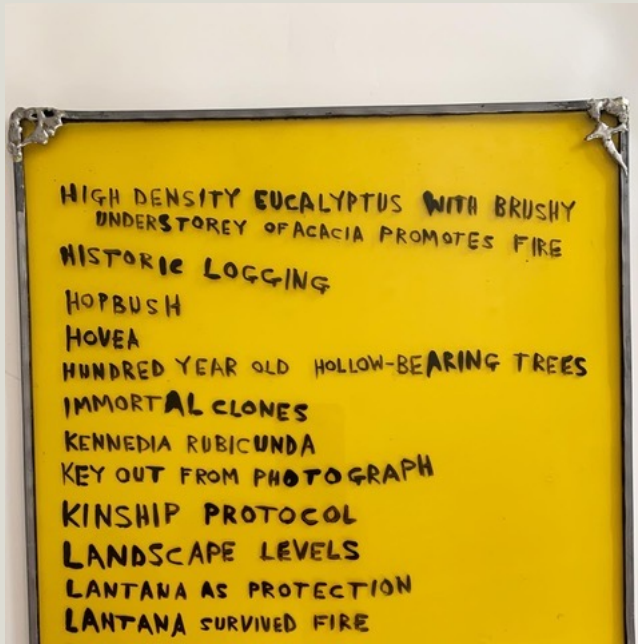 HIGH DENSITY EUCALYPTUS WITH BRUSHY
UNDERSTOREY OF ACACIA PROMOTES FIRE
HISTORIC LOGGING
HOPBUSH
HOVEA
HUNDRED YEAR OLD HOLLOW-BEARING TREES
IMMORTAL CLONES
KENNEDIA RUBICUNDA
KEY OUT FROM PHOTOGRAPH
KINSHIP PROTOCOL
LANDSCAPE LEVELS
LANTANA AS PROTECTION
LANTANA SURVIVED FIRE